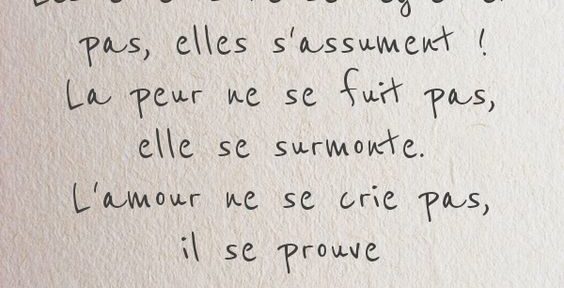 pas, elles s'assument !
La peur ne se fuit pas,
elle se surmonte.
L'amour ne se crie pas,
il se prouve